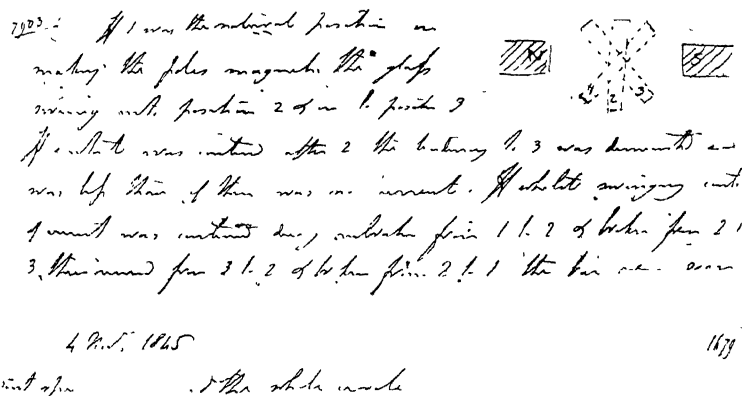 7903. If 1 was the natural position on
making the poles magnetic the glass
swung into position 2 & on to position 3
N S 4 2 3
If contact was continued after 2 the tendency to 3 was diminished and
was less than if there was no current. If whilst swinging
current was continued during vibration from 1 to 2 & broken from 2 to
3, then renewed from 3 to 2 & broken from 2 to 1 the bar soon
4 Nov. 1845
1679
the whole